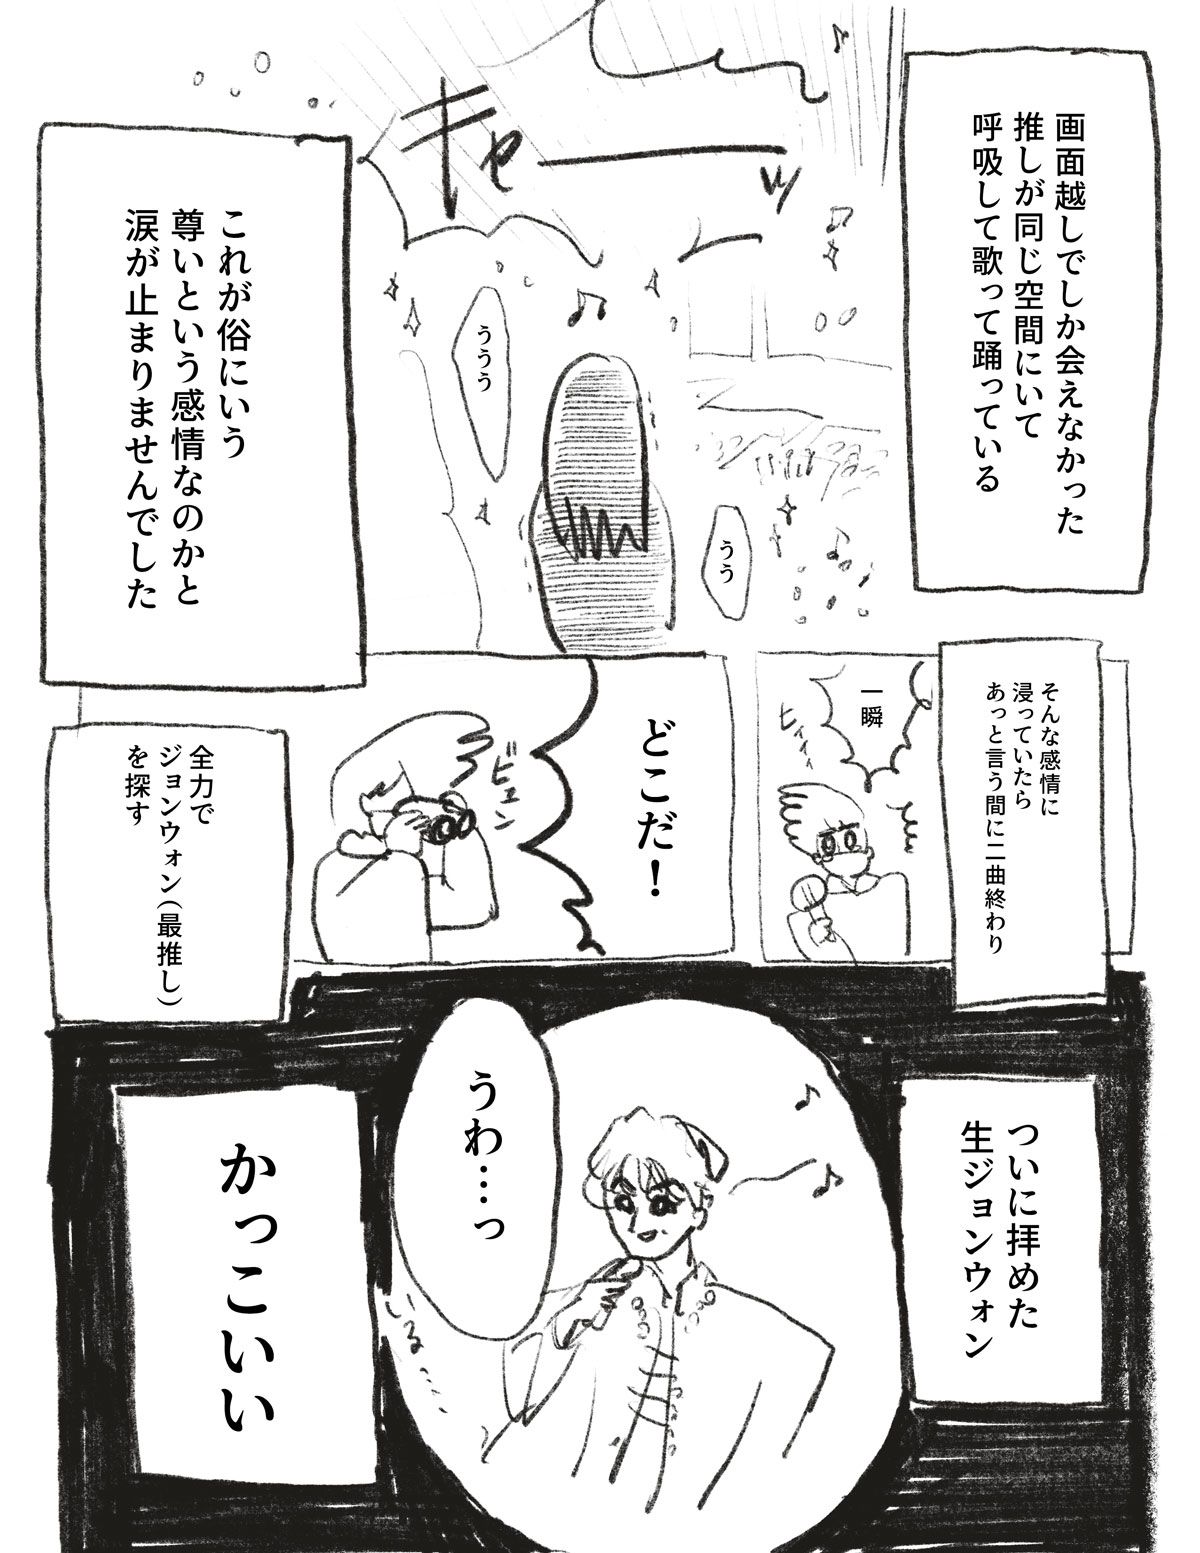 画面越しでしか会えなかった
推しが同じ空間にいて
呼吸して歌って踊っている
キャーッ
ううう
うう
これが俗にいう
尊いという感情なのかと
涙が止まりませんでした
そんな感情に
浸っていたら
あっと言う間に二曲終わり
一瞬
ヒィィィ
どこだ！
ビュン
全力で
ジョンウォン(最推し)
を探す
ついに拝めた
生ジョンウォン
うわ…っ
いる…
かっこいい